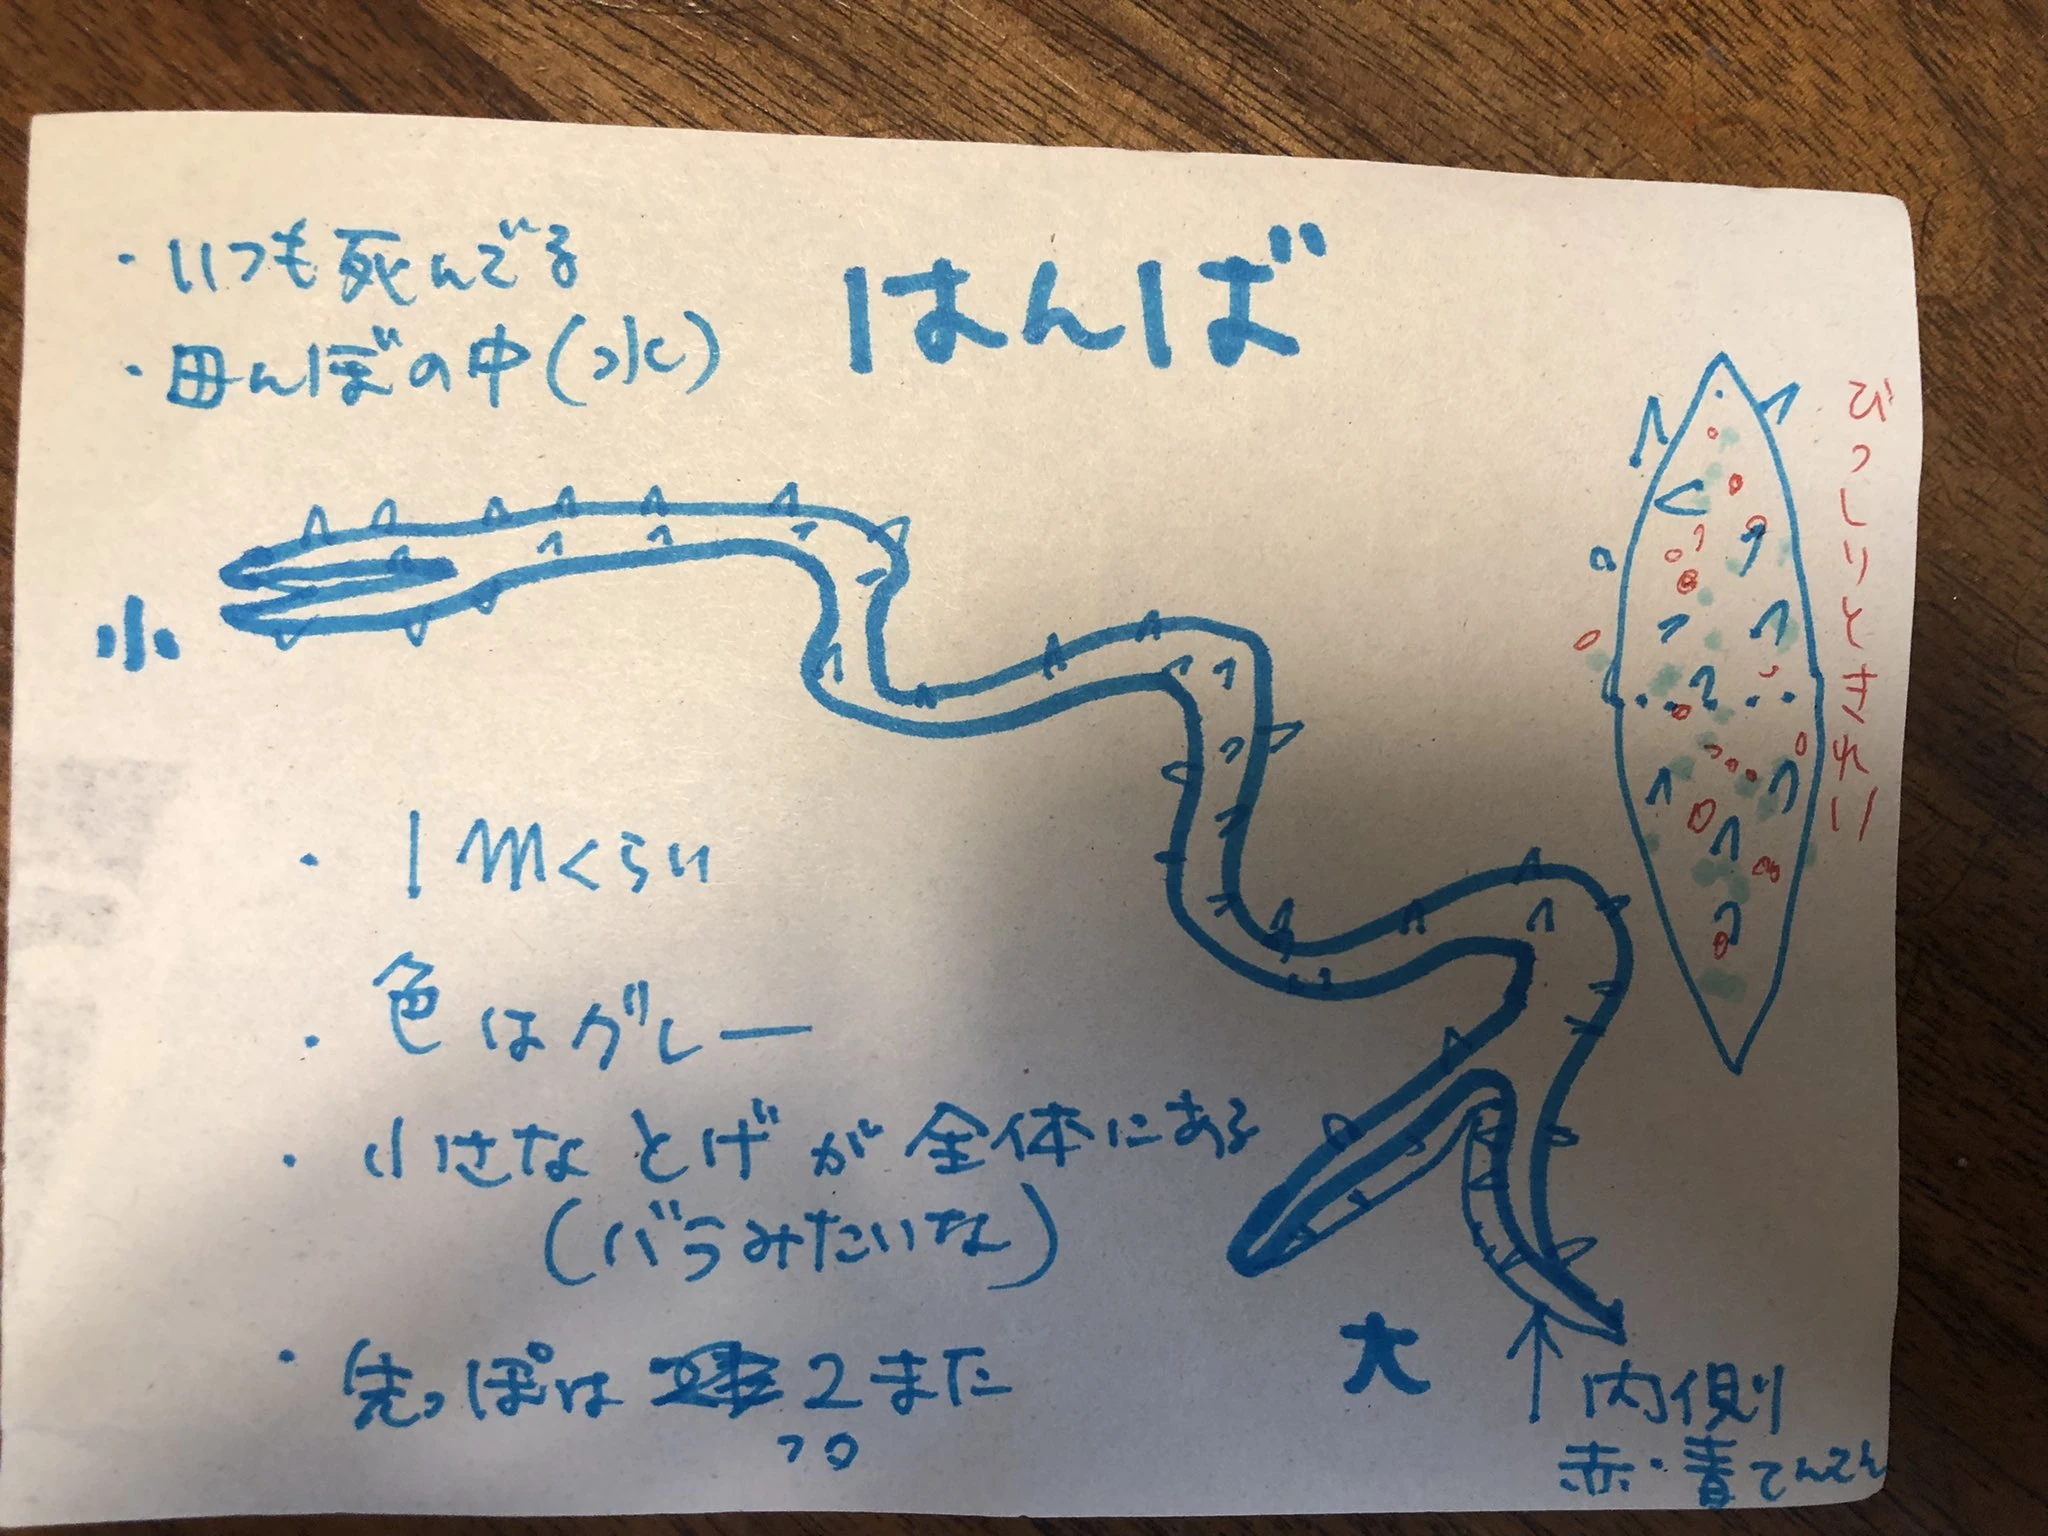 ・いつも死んでる
・田んぼの中(水)
はんば
びっしりときれい
小
・1mくらい
・色はグレー
・小さなとげが全体にある
(バラみたいな)
・先っぽは 2また
大
内側
赤・青てんてん